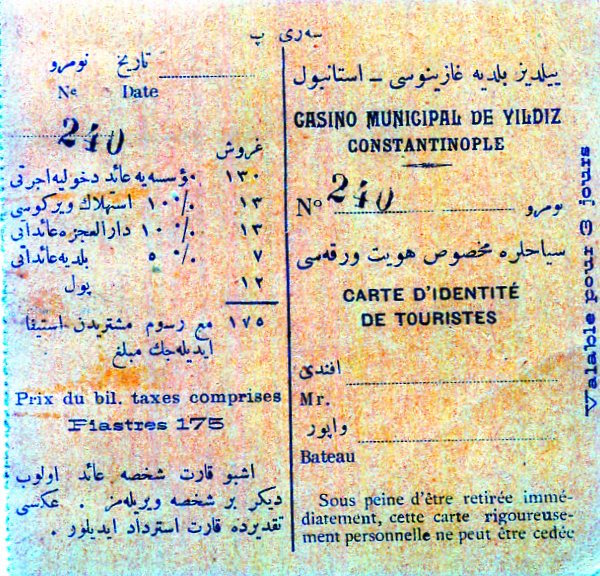 سه‌ری پ
تاریخ نومرو
Nº Date
240
غروش
١٣٠ مؤسسه‌یه عائد دخولیه اجرتی
١٣ ١٠ % استهلاك ویركوسی
١٣ ١٠ % دارالعجزه عائداتی
٧ ٥ % بلدیه عائداتی
١٢ پول
١٧٥ مع رسوم مشتریدن استیفا
ایدیله‌جك مبلغ
Prix du bil. taxes comprises
Piastres 175
اشبو قارت شخصه عائد اولوب
دیكر بر شخصه ویریله‌مز . عكسی
تقدیرده قارت استرداد ایدیلور .
ییلدیز بلدیه غازینوسی – استانبول
CASINO MUNICIPAL DE YILDIZ
CONSTANTINOPLE
Nº 240 نومرو
سیاحلره مخصوص هویت ورقه‌سی
CARTE D'IDENTITÉ
DE TOURISTES
افندی
Mr.
واپور
Bateau
Sous peine d'être retirée immé-
diatement, cette carte rigoureuse-
ment personnelle ne peut être cedée
Walable pour 3 jours